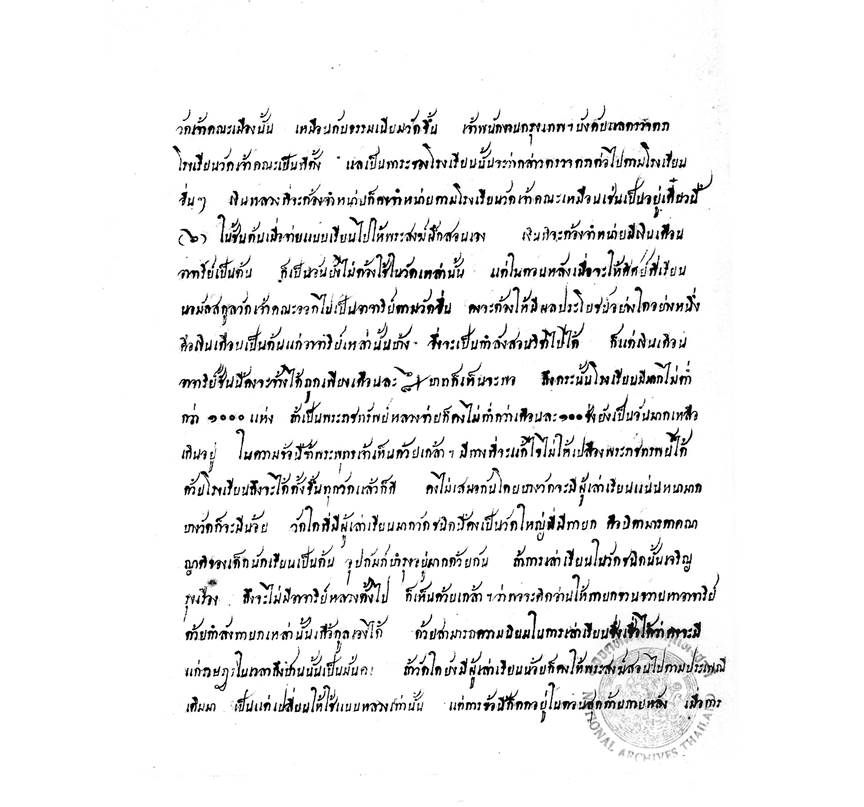 วัดเจ้าคณะเมืองนั้น เหมือนกับธรรมเนียมวัดขึ้น เจ้าพนักงานกรุงเทพฯ บังคับแลตรวจตรา
โรงเรียนวัดเจ้าคณะเป็นที่ตั้ง แลเป็นภาระของโรงเรียนนั้นจะว่ากล่าวตรวจตราต่อไปตามโรงเรียน
อื่นๆ เงินหลวงที่จะต้องจำหน่ายก็คงจำหน่ายตามโรงเรียนวัดเจ้าคณะเหมือนเช่นเป็นอยู่เดี๋ยวนี้
(๖) ในชั้นต้นเมื่อจ่ายแบบเรียนไปให้พระสงฆ์ฝึกสอนเอง เงินที่จะต้องจำหน่ายมีเงินเดือน
อาจารีย์เป็นต้น ก็เป็นอันยังไม่ต้องใช้ในวัดเหล่านั้น แต่ในตอนหลังเมื่อจะให้ศิษย์ที่เรียน
นอมัลสกูลวัดเจ้าคณะออกไปเป็นอาจารีย์ตามวัดอื่น คงจะต้องให้มีผลประโยชน์อย่างใดอย่างหนึ่ง
คือเงินเดือนเป็นต้นแก่อาจารีย์เหล่านั้นบ้าง จึ่งจะเป็นกำลังสอนวิชาไปได้ ก็แต่เงินเดือน
อาจารีย์ชั้นนี้คงจะจ้างได้ถูกเพียงเดือนละ บาทก็เห็นจะพอ ถึงกระนั้นโรงเรียนมีมากไม่ต่ำ
กว่า ๑๐๐๐ แห่ง ถ้าเป็นพระราชทรัพย์หลวงจ่ายก็คงไม่ต่ำกว่าเดือนละ ๑๐๐ ชั่ง ยังเป็นอันมากเหลือ
เกินอยู่ ในความข้อนี้ข้าพระพุทธเจ้าเห็นด้วยเกล้าฯ มีทางที่จะแก้ไขไม่ให้เปลืองพระราชทรัพย์ได้
ด้วยโรงเรียนถึงจะได้ตั้งขึ้นทุกวัดแล้วก็ดี คงไม่เสมอกันโดยบางวัดจะมีผู้เล่าเรียนแน่นหนามาก
บางวัดก็จะมีน้อย วัดใดที่มีผู้เล่าเรียนมากวัดชนิดนี้คงเป็นวัดใหญ่ที่มีทายก คือบิดามารดาคณา
ญาติของเด็กนักเรียนเป็นต้น อุปถัมภ์บำรุงอยู่มากด้วยกัน ถ้าการเล่าเรียนในวัดชนิดนั้นเจริญ
รุ่งเรือง ถึงจะไม่มีอาจารีย์หลวงตั้งไป ก็เห็นด้วยเกล้าฯ ว่าพอจะคิดอ่านให้ทายกขวนขวายหาอาจารีย์
ด้วยกำลังทายกเหล่านั้นเกื้อกูลเองได้ ด้วยสามารถความนิยมในการเล่าเรียนซึ่งเชื่อได้ว่าคงจะมี
แก่ราษฎรในเวลาถึงเช่นนั้นเป็นมั่นคง ถ้าวัดใดยังมีผู้เล่าเรียนน้อยก็คงให้พระสงฆ์สอนไปตามประเพณี
เดิมมา เป็นแต่เปลี่ยนให้ใช้แบบหลวงเท่านั้น แต่การข้อนี้คิดอยู่ในตอนสุดท้ายภายหลัง เมื่อการ
หอจดหมายเหตุแห่งชาติ
NATIONAL ARCHIVES THAILAND